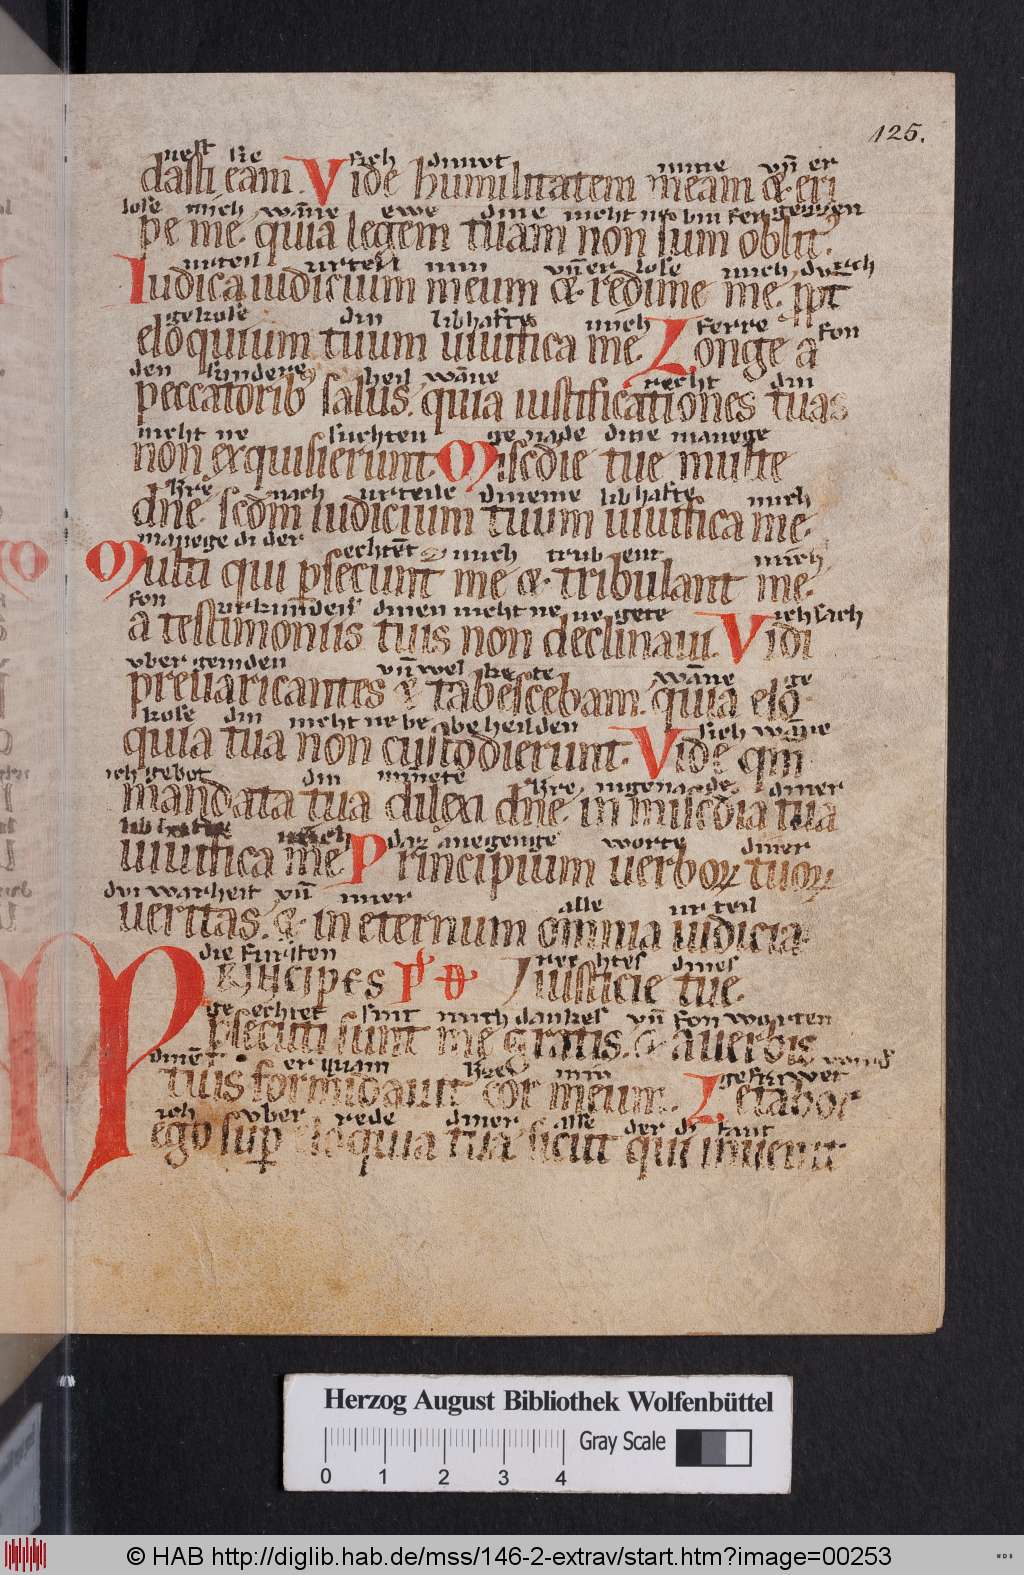 125.
nest
dasti eam. Vide humilitatem meam & eri
lose mich wāne ewe dine nicht
pe me. quia legem tuam non sum oblit᷒.
urteil urteil min vn̄ er lose mich durch
Iudica iudicium meum & redime me. ppt
gekose din libhafte mich ferre fon
eloquium tuum uiuifica me. Longe a
den sundere heil wāne recht din
peccatorib᷒ salus. quia iustificationes tuas
nicht ne suchten genade dine manege
non exquisierunt. Misc̄die tue multe
nach urteile dineme libhafte mich
dn̄e. scd̄m iudicium tuum uiuifica me.
manege di der echtēt mich trubent mich
Multi qui p̄secunt me &. tribulant me.
fon urkundeis dinen nicht ne ne gete ich sach
a testimoniis tuis non declinaui. Vidi
vber genden vn̄ wāne ge
preuaricantes & tabescebam. quia elo
kose din nicht ne beheilden sich wāne
quia tua non custodierunt. Vide qm̄
ich gebot din minete in genade diner
mandata tua dilexi dn̄e. in misc̄dia tua
mich daz anegenge worte diner
uiuifica me. Principium uerboꝝ tuoꝝ
dui warheit vn̄ imer alle urteil
ueritas. & in eternum omnia iudicia
die fursten rechtes dines
PRINcipes iusticie tue.
ge echtet sint mich dankes vn̄ fon worten
p̄secuti sunt me gratis. & a uerbis
dinēn er quam min
tuis formidauit cor meum. Letabor
ich vber rede diner alse der di fant
ego sup̄ eloquia tua sicut qui inuenit
Herzog August Bibliothek Wolfenbüttel
Gray Scale
0 1 2 3 4
© HAB http://diglib.hab.de/mss/146-2-extrav/start.htm?image=00253